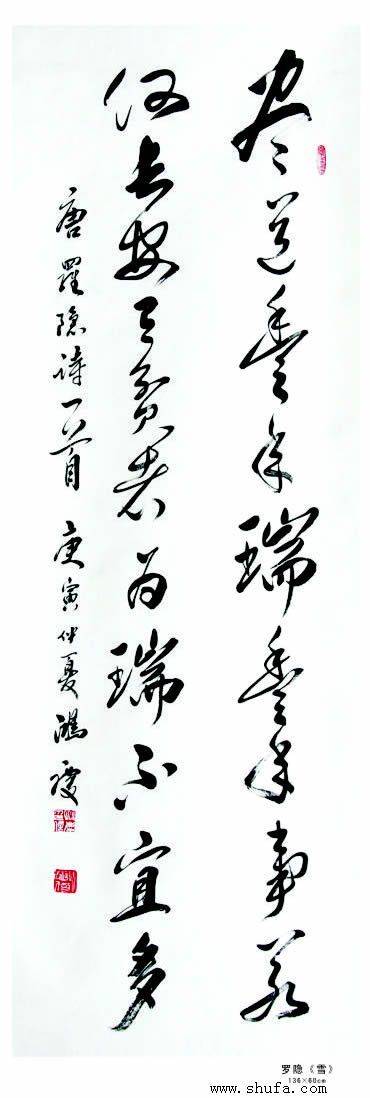 尽道豐年瑞豐年事若
何長安有貧者為瑞不宜多
唐羅隐詩一首 庚寅仲夏鴻
罗隐《雪》
136×60cm
www.shufa.com